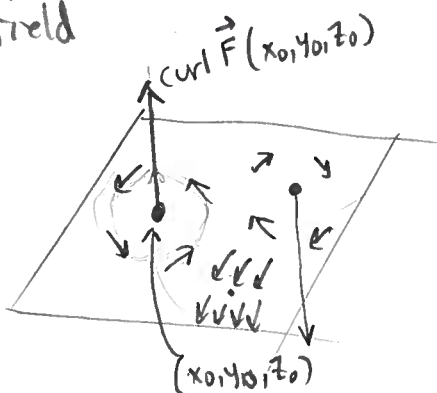 field
curl F⃗ (x₀,y₀,z₀)
(x₀,y₀,z₀)